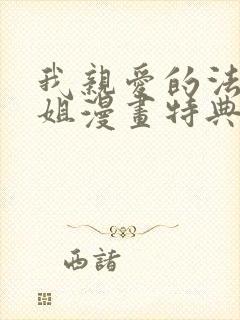 我親愛的法
姐漫畫特典
西諸